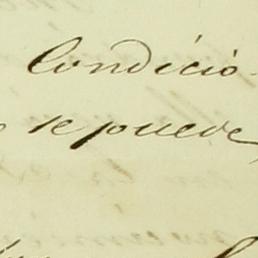 Condició
se puede